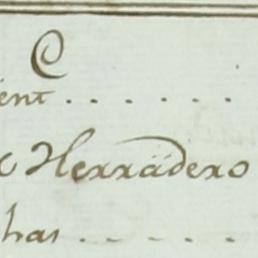 C
ient . . . . . .
Herradero
has . . . . .